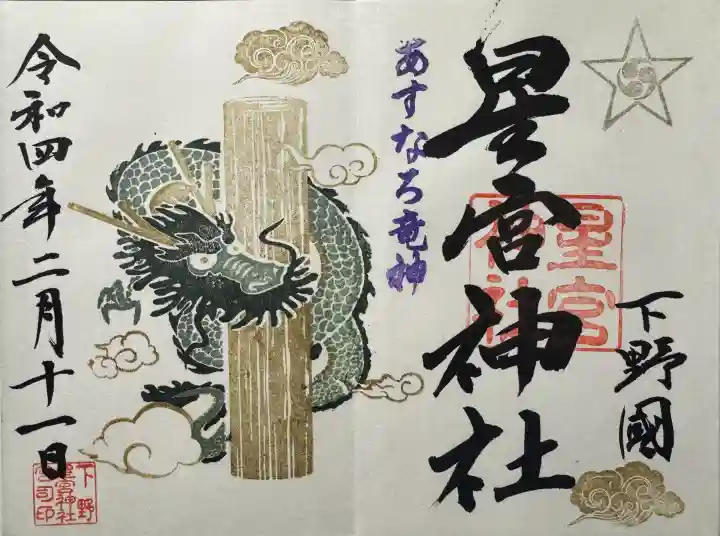 下野國
星宮神社
星宮
神社
あすなろ竜神
令和四年二月十一日
下野
星宮神社
宮司印